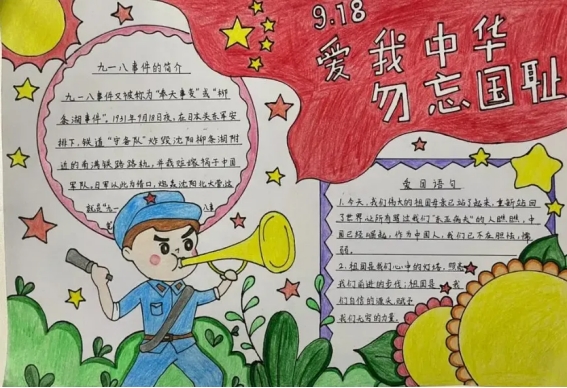 9.18
爱我中华
勿忘国耻
九一八事件的简介
九一八事件又被称为“奉天事变”或“柳
条湖事件”，1931年9月18日夜，在日本关东军安
排下，铁道“守备队”炸毁沈阳柳条湖附
近的南满铁路路轨，并栽赃嫁祸于中国
军队，日军以此为借口，炮轰沈阳北大营这
就是“九一八事
爱国语句
1.今天，我们伟大的祖国母亲已站了起来，重新站回
了世界让所有骂过我们“东亚病夫”的人瞧瞧，中
国已经崛起，作为中国人，我们已不在胆怯，懦
弱。
2.祖国是我们心中的灯塔，照亮
我们前进的步伐，祖国是我
们自信的源头，赋予
我们无穷的力量。